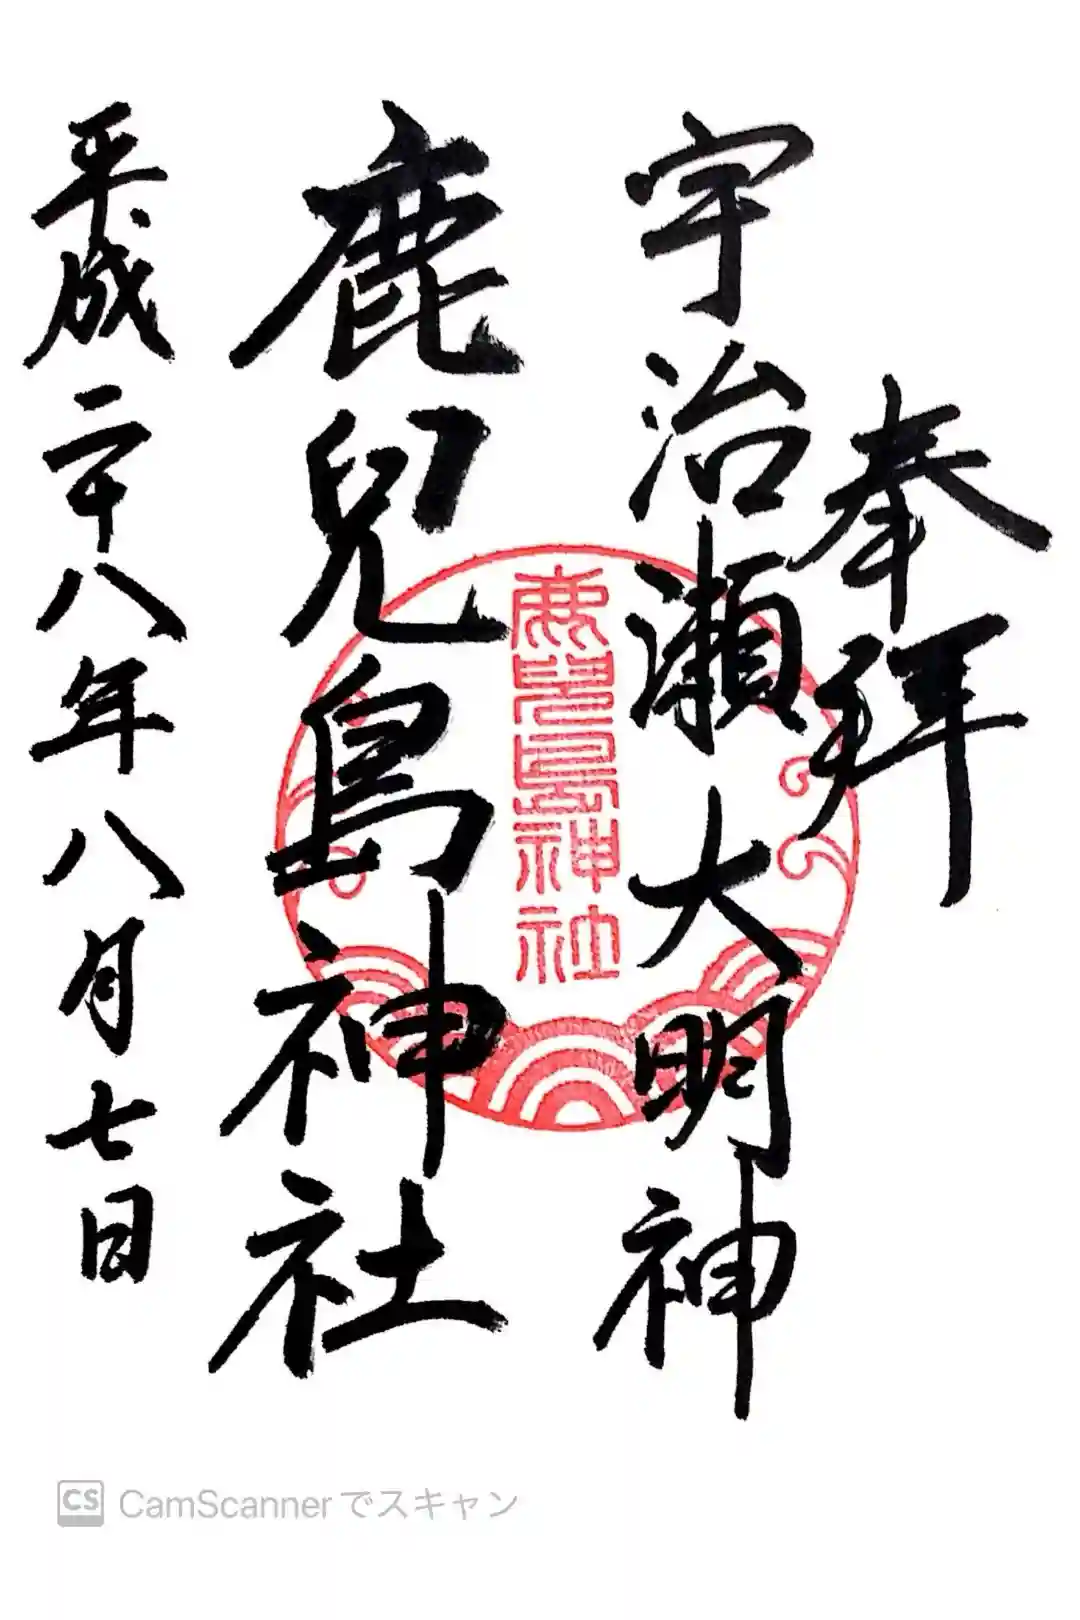 奉拝
宇治瀬大明神
鹿兒島神社
鹿児島神社
平成二十八年八月七日
CS CamScannerでスキャン